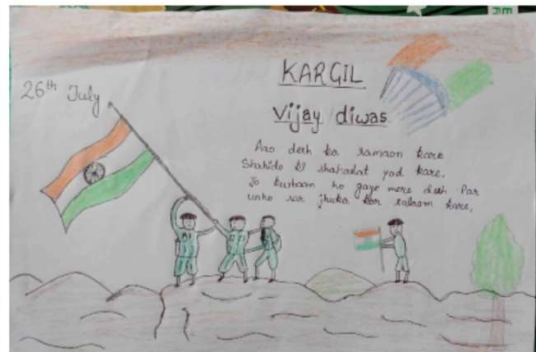 26th July
KARGIL
Vijay diwas
Aao desh ka samaan kare
Shahido ki shahadat yad kare,
Jo kurbaan ho gaye mere desh Par
unko sar jhuka kar salaam kare,